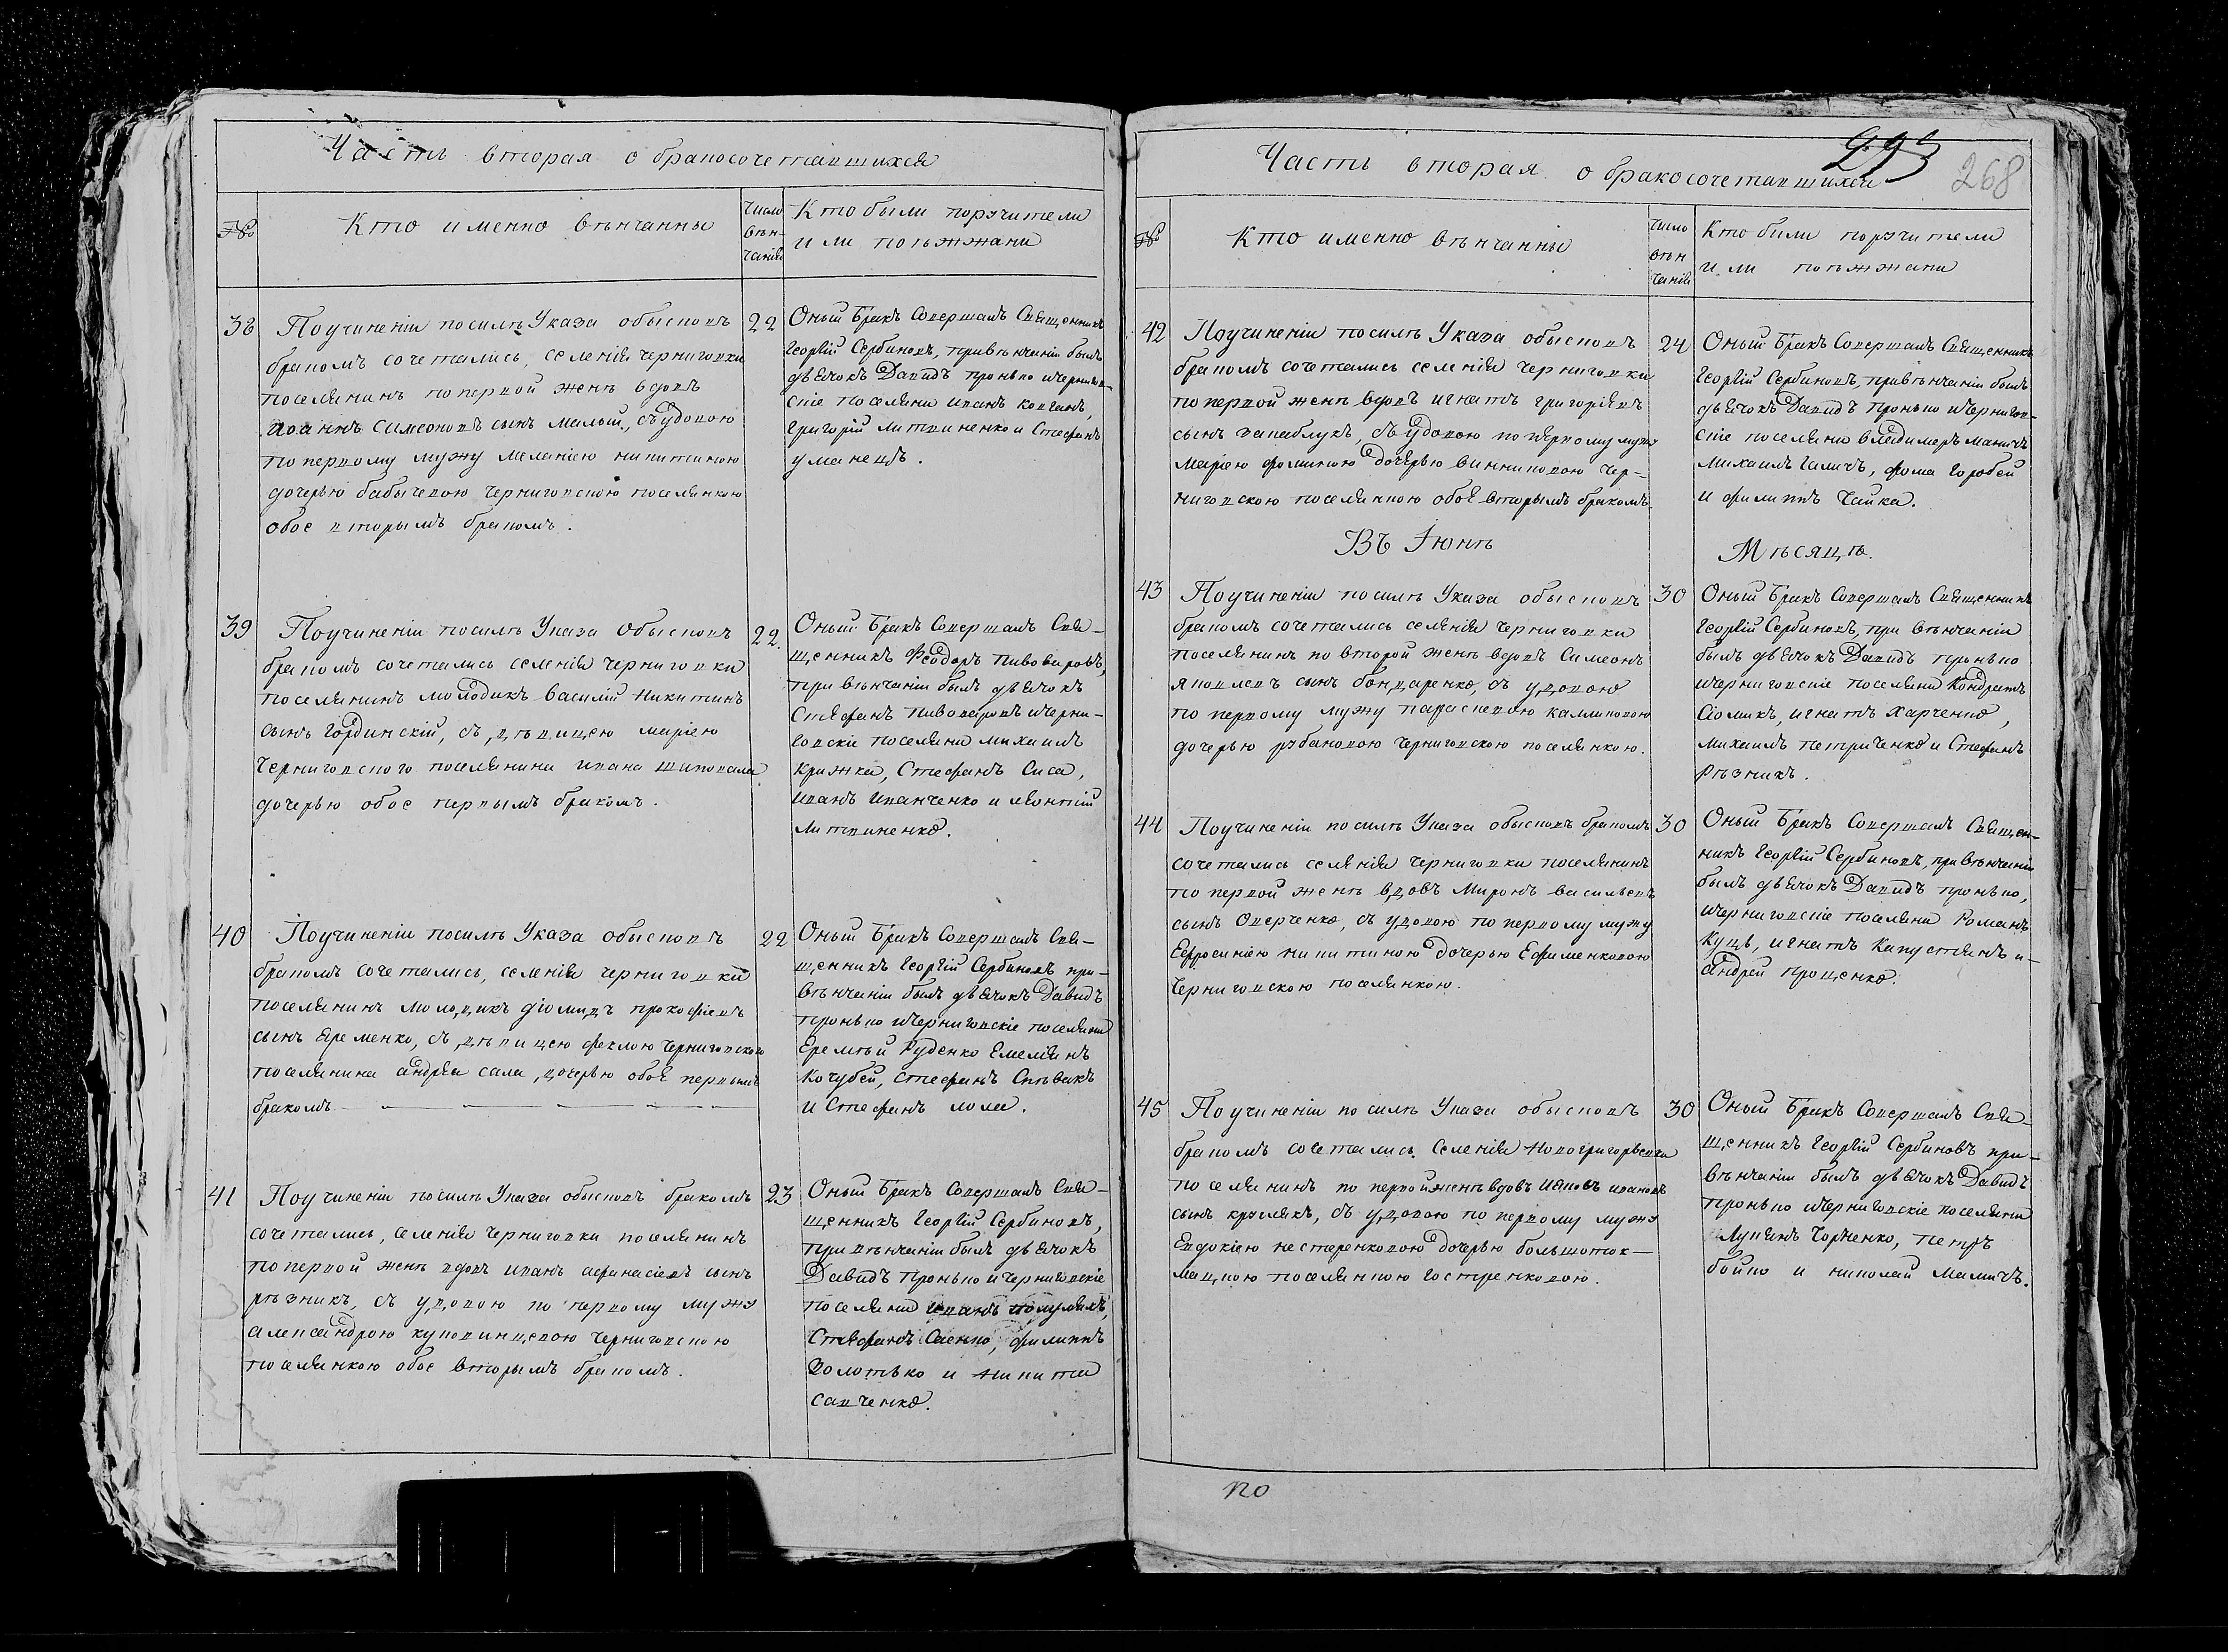 Часть вторая о бракосочетавшихся
№
Кто именно вѣнчанны
Число
вѣн-
чанія
Кто были поручители
или поѣжжани
38
Поучиненіи посилѣ Указа обысковъ
бракомъ сочетались, селенія черниговки
поселянинъ попервой женѣ вдовъ
иоаннъ симеоновъ сынъ малый, съ удовою
попервому мужу меланіею никитиною
дочерью бабычевою черниговскою поселянкою
обое вторымъ бракомъ.
22
Оный Бракъ Совершалъ Священникъ
Георгій Сербиновъ, привѣнчаніи былъ
дьячокъ Давидъ пронько ичернигов-
скіе поселяни иванъ ковганъ,
григорій литвиненко и Стефанъ
уманецъ.
39
Поучиненіи посилѣ Указа Обысковъ
бракомъ сочетались селенія черниговки
поселянинъ молодикъ василій никитинъ
сынъ гординскій, съ дѣвицею маріею
черниговского поселянина ивана шаповала
дочерью обое первымъ бракомъ.
22.
Оный Бракъ Совершалъ Свя-
щенникъ Феодоръ пивоваровъ,
при вѣнчаніи былъ дьячокъ
Стефанъ пивоваровъ ичерни-
говскіе поселяни михаилъ
крижка, Стефанъ Сиса,
иванъ иванченко и леонтій
литвиненко.
40
Поучиненіи посилѣ Указа обысковъ
бракомъ сочетались, селенія черниговки
поселянинъ молодикъ діомидъ прокофіевъ
сынъ еременко, съ дѣвицею феклою черниговского
поселянина андрея сала, дочерью обоё первымъ
бракомъ
22
Оный Бракъ Совершалъ Свя-
щенникъ Георгій Сербиновъ при-
вѣнчаніи былъ дьячокъ Давидъ
пронько ичерниговскіе поселяни
Еремѣй Руденко Емеліянъ
Кочубей, Стефанъ Спѣвакъ
и Стефанъ лола.
41
Поучиненіи посилѣ Указа обысковъ бракомъ
сочетались, селенія черниговки поселянинъ
попервой женѣ вдовъ иванъ афанасіевъ сынъ
рѣзникъ, съ удовою по первому мужу
александрою куповинцевою черниговскою
поселянкою обое вторымъ бракомъ.
23
Оный Бракъ Совершалъ Свя-
щенникъ Георгій Сербиновъ,
привѣнчаніи былъ дьячокъ
Давидъ пронько и черниговскіе
поселяни иванъ полулякъ,
Стефанъ Саенко, филиппъ
Золотько и никита
савченко.
Часть вторая о бракосочетавшихся
268
№
Кто именно вѣнчанны
Число
вѣн
чанія
Кто били поручители
или поѣжжани
42
Поучиненіи посилѣ Указа обысковъ
бракомъ сочетались селенія черниговки
попервой женѣ вдовъ игнатъ григоріевъ
сынъ запаблукъ, съ удовою по первому мужу
маріею фоминою дочерью винниковою чер-
ниговскою поселянкою обоё вторымъ бракомъ.
24
Оный Бракъ Совершалъ Священникъ
Георгій Сербиновъ, привѣнчаніи былъ
дьячокъ Давидъ Пронько ичернигов-
скіе поселяни владимеръ маничъ
михаилъ Галичъ, фома Горобей
и филиппъ Чайка.
Въ Іюнѣ Мѣсяцѣ.
43
Поучиненіи посилѣ Указа обысковъ
бракомъ сочетались селенія черниговки
поселянинъ по второй женѣ вдовъ Симеонъ
яковлевъ сынъ бондаренко, съ удовою
по первому мужу параскевою каллиновою
дочерью рубановою черниговскою поселянкою.
30
Оный Бракъ Совершалъ Священникъ
Георгій Сербиновъ, при вѣнчаніи
былъ дьячокъ Давидъ пронько
ичерниговскіе поселяни Кондратъ
Сіомикъ, игнатъ Харченко,
михаилъ петриченко и Стефанъ
Рѣзникъ.
44
Поучиненіи посилѣ Указа обысковъ бракомъ
сочетались селенія черниговки поселянинъ
по первой женѣ вдовъ Миронъ васильевъ
сынъ Оверченко, съ удовою по первому мужу
Ефросиніею никитиною дочерью Ефименковою
черниговскою поселянкою.
30
Оный Бракъ Совершалъ Священ-
никъ Георгій Сербиновъ, при вѣнчаніи
былъ дьячокъ Давидъ пронько,
ичерниговскіе поселяни Романъ
Куць, игнатъ Капустянъ и-
андрей проценко.
45
Поучиненіи посилѣ Указа обысковъ
бракомъ сочетались селенія Новогригорьевки
поселянинъ по первой женѣ вдовъ Іановъ ивановъ
сынъ круглякъ, съ удовою по первому мужу
Евдокіею нестеренковою дочерью большоток-
мацкою поселянкою гостренковою.
30
Оный Бракъ Совершалъ Свя-
щенникъ Георгій Сербиновъ при-
вѣнчаніи былъ дьячокъ Давидъ
пронько ичерниговскіе поселяни
Лукянъ Чорненко, петръ
бойко и николай Маличъ.
по